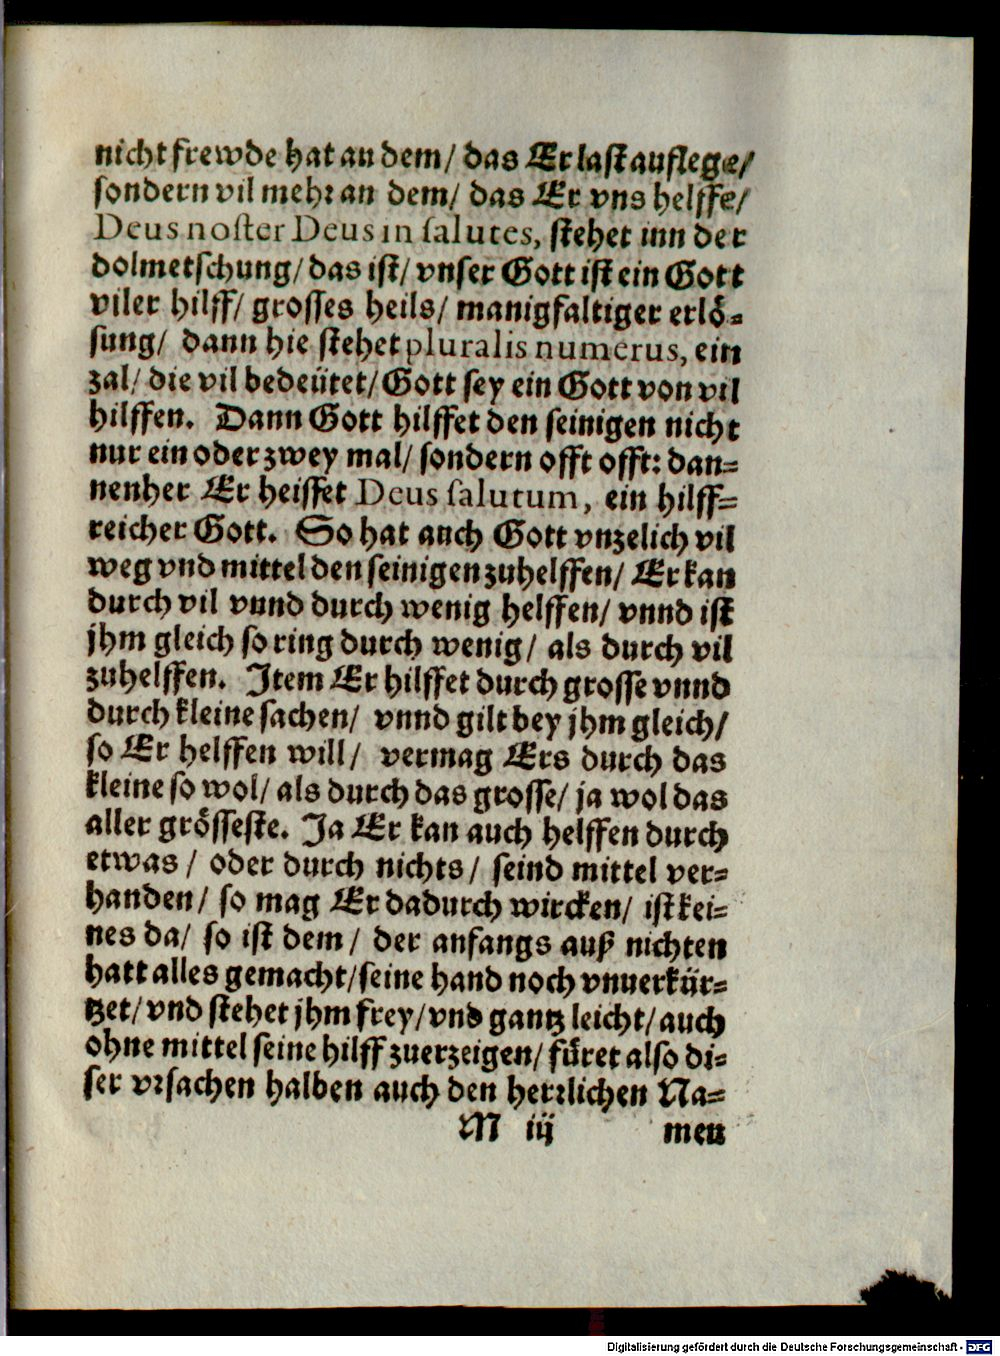 nicht frewde hat an dem/ das Er last auflege/
sondern vil mehr an dem/ das Er vns helffe/
Deus noster Deus in salutes, stehet inn der
dolmetschung/ das ist/ vnser Gott ist ein Gott
viler hilff/ grosses heils/ manigfaltiger erlö-
sung/ dann hie stehet pluralis numerus, ein
zal/ die vil bedeütet/ Gott sey ein Gott von vil
hilffen. Dann Gott hilffet den seinigen nicht
nur ein oder zwey mal/ sondern offt offt: dan-
nenher Er heisset Deus salutum, ein hilff-
reicher Gott. So hat auch Gott vnzelich vil
weg vnd mittel den seinigen zuhelffen/ Er kan
durch vil vnnd durch wenig helffen/ vnnd ist
jhm gleich so ring durch wenig/ als durch vil
zuhelffen. Item Er hilffet durch grosse vnnd
durch kleine sachen/ vnnd gilt bey jhm gleich/
so Er helffen will/ vermag Ers durch das
kleine so wol/ als durch das grosse/ ja wol das
aller grösseste. Ja Er kan auch helffen durch
etwas/ oder durch nichts/ seind mittel ver-
handen/ so mag Er dadurch wircken/ ist kei-
nes da/ so ist dem/ der anfangs auß nichten
hatt alles gemacht/ seine hand noch vnuerkür-
tzet/ vnd stehet jhm frey/ vnd gantz leicht/ auch
ohne mittel seine hilff zuerzeigen/ füret also di-
ser vrsachen halben auch den herrlichen Na-
M iij men
Digitalisierung gefördert durch die Deutsche Forschungsgemeinschaft - DFG